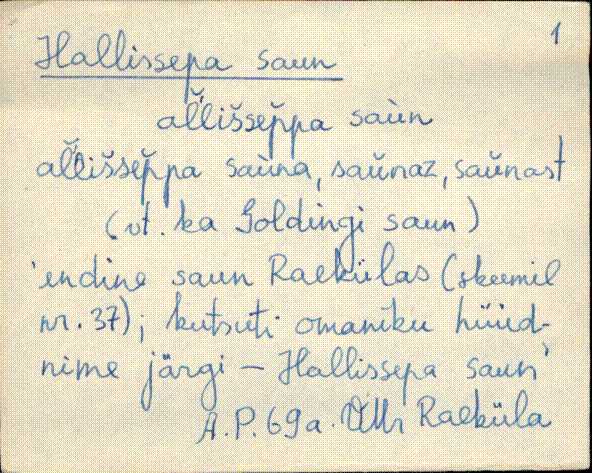 1
Hallissepa saun
al̆lišsep̆pa saùn
al̆lišsep̆pa saùna, saŭnaz, saŭnast
(vt. ka Goldingi saun)
'endine saun Raekülas (skeemil
nr. 37); kutsuti omaniku hüüd-
nime järgi – Hallissepa saun'
A.P. 69a. Raeküla